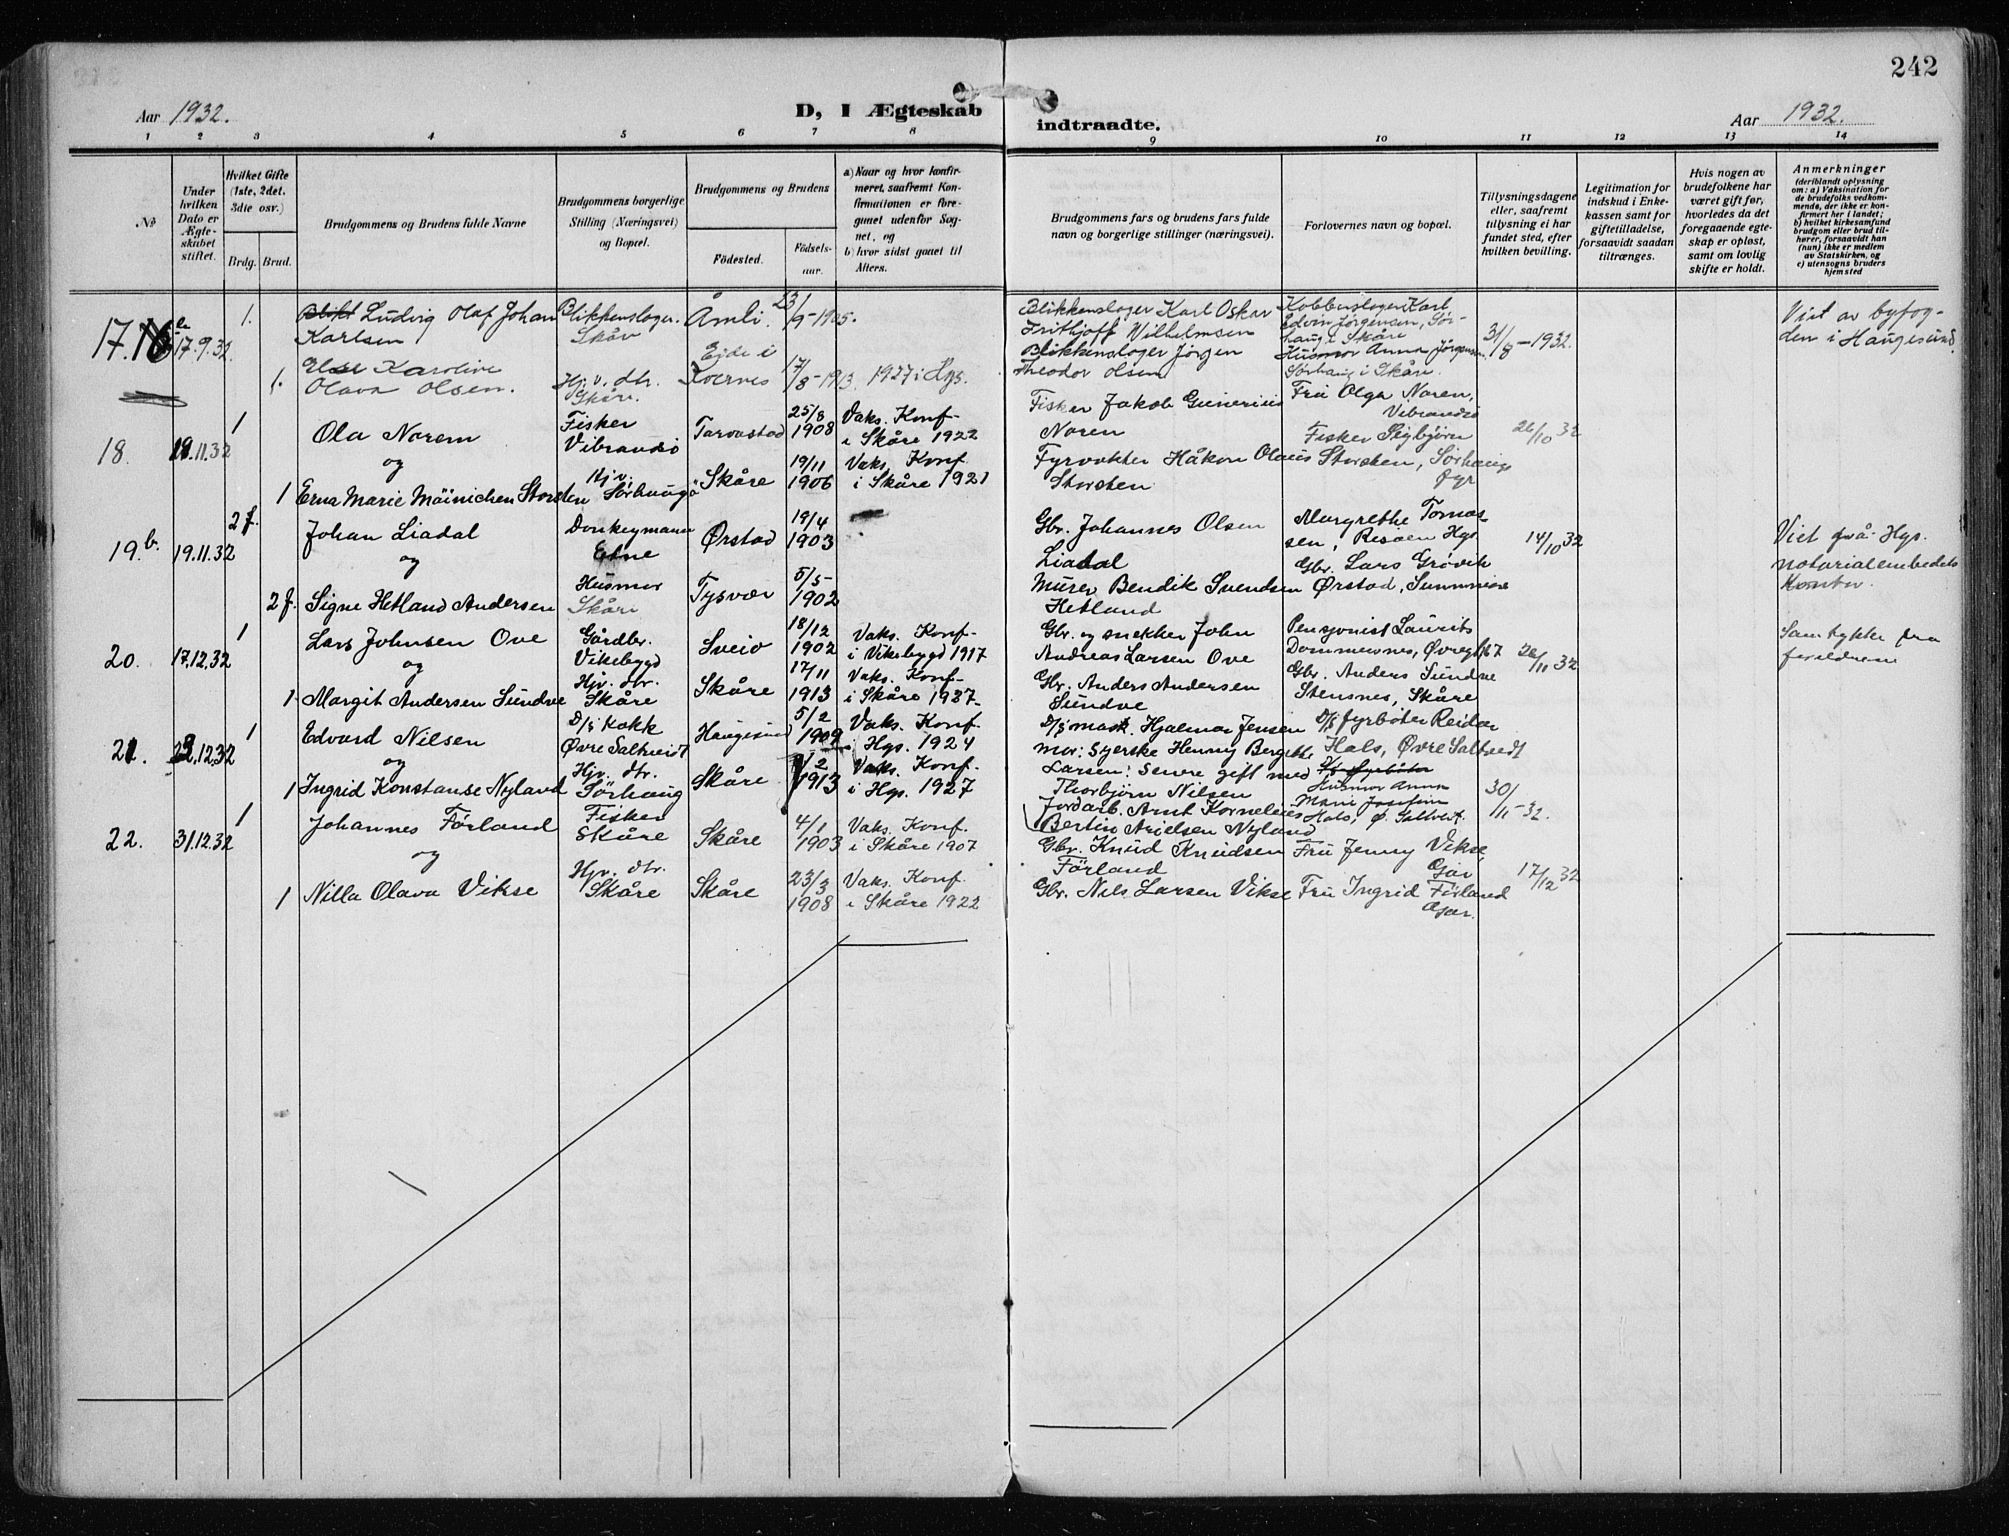 242
Aar 1932.
D, I Ægteskab
indtraadte.
Aar 1932.
1 2 3 4 5 6 7 8 9 10 11 12 13 14
№
Under hvilken Dato er Ægteskabet stiftet.
Hvilket Gifte (1ste, 2det, 3die osv.)
Brdg. Brud.
Brudgommens og Brudens fulde Navne
Brudgommens borgerlige Stilling (Næringsvei) og Bopæl.
Brudgommens og Brudens
Fødested.
Fødselsaar.
a) Naar og hvor konfirmeret, saafremt Konfirmationen er foregaaet udenfor Sognet, og
b) hvor sidst gaaet til Alters.
Brudgommens fars og brudens fars fulde navn og borgerlige stillinger (næringsvei).
Forlovernes navn og bopæl.
Tillysningsdagene eller, saafremt tillysning ei har fundet sted, efter hvilken bevilling.
Legitimation for indskud i Enkekassen samt for giftetilladelse, forsaavidt saadan tiltrænges.
Hvis nogen av brudefolkene har været gift før, hvorledes da det foregaaende egteskap er opløst, samt om lovlig skifte er holdt.
Anmerkninger
(deriblandt oplysning om: a) Vaksination for de brudefolks vedkommende, der ikke er konfirmert her i landet; b) hvilket kirkesamfund brudgom eller brud tilhører, forsaavidt han (hun) ikke er medlem av Statskirken, og c) utensogns bruders hjemsted
17. 17.9.32 1. Ludvig Olaf Johan Karlsen Blikkenslager. Skåre Åmli. 23/9-1905. Blikkenslager Karl Oskar Frithjoff Wilhelmsen Kobberslager Karl Edvin Jørgensen, Sørhaug i Skåre 31/8-1932. Viet av byfogden i Haugesund.
1. Else Karoline Olava Olsen. Hj.v. dtr. Skåre. Eide i Kvernes 17/8-1913. 1927 i Hgs. Blikkenslager Jörgen Theodor Olsen Husmor Anna Jørgensen Sørhaug i Skåre.
18. 19.11.32 1 Ola Norem Fisker Vibrandsö Tarvastad 25/8 1908 Vaks. Konf. i Skåre 1922 Fisker Jakob Gunerius Noren Fru Olga Noren, Vibrandsö 26/10 32
og
1 Erna Marie Möinichen Storsten Hjv. Sörhaugö Skåre 19/11 1906 Vaks. Konf. i Skåre 1921 Fyrvokter Håkon Olaus Storsten Fisker Sigbjörn Storsten, Sörhaug fyr
19b. 19.11.32 2 f. Johan Liadal Donkeymann Etne Ørstad 19/4 1903 Gbr. Johannes Olsen Liadal Margrethe Tomassen, Risøen Hgs. 14/10 32 Viet på Hgs. notarialembedets kontor.
og
2 f. Signe Hetland Andersen Husmor Skåre Tysvær 5/5- 1902 Murer Bendik Svendsen Hetland Gbr. Lars Grövik Ørstad, Sunnmöre
20. 17.12.32 1 Lars Johnsen Ove Gårdbr. Vikebygd Sveio 18/12 1902 Vaks. Konf. i Vikebygd 1917 Gbr. og snekker John Andreas Larsen Ove Pensjonist Laurits Dommersnes, Øvregt 67 26/11 32 Samtykke fra foreldrene
og
1 Margit Andersen Sundve Hjv. dtr. Skåre Skåre 17/11 1913 Vaks. Konf. i Skåre 1927. Gbr. Anders Andersen Sundve Gbr. Anders Sundve Stensnes, Skåre
21. 23.12.32 1 Edvard Nilsen D/s Kokk Øvre Saltveidt Haugesund 5/2 1909 Vaks. Konf. i Hgs. 1924 D/s mask. Hjalmar Jensen mor: Syerske Henny Bergitte Larsen: Senere gift med Thorbjörn Nilsen D/s fyrböter Reidar Hals, Øvre Saltveidt
og
1 Ingrid Konstanse Nyland Hjv. dtr. Sörhaug Skåre 1/2 1913 Vaks. Konf. i Hgs. 1927 Jordarb. Arnt Kornelius Bertin Arielsen Nyland Husmor Anna Marie Josefine Hals, Ø. Saltveit. 30/11-32.
22. 31.12.32 1 Johannes Förland Fisker Skåre Skåre 4/1 1903 Vaks. Konf. i Skåre 1907 Gbr. Knud Knudsen Förland Fru Jenny Vikse, Gjar 17/12 32
og
1 Nilla Olava Vikse Hjv. dtr. Skåre Skåre 23/3 1908 Vaks. Konf. i Skåre 1922 Gbr. Nils Larsen Vikse Fru Ingrid Förland Gjar.